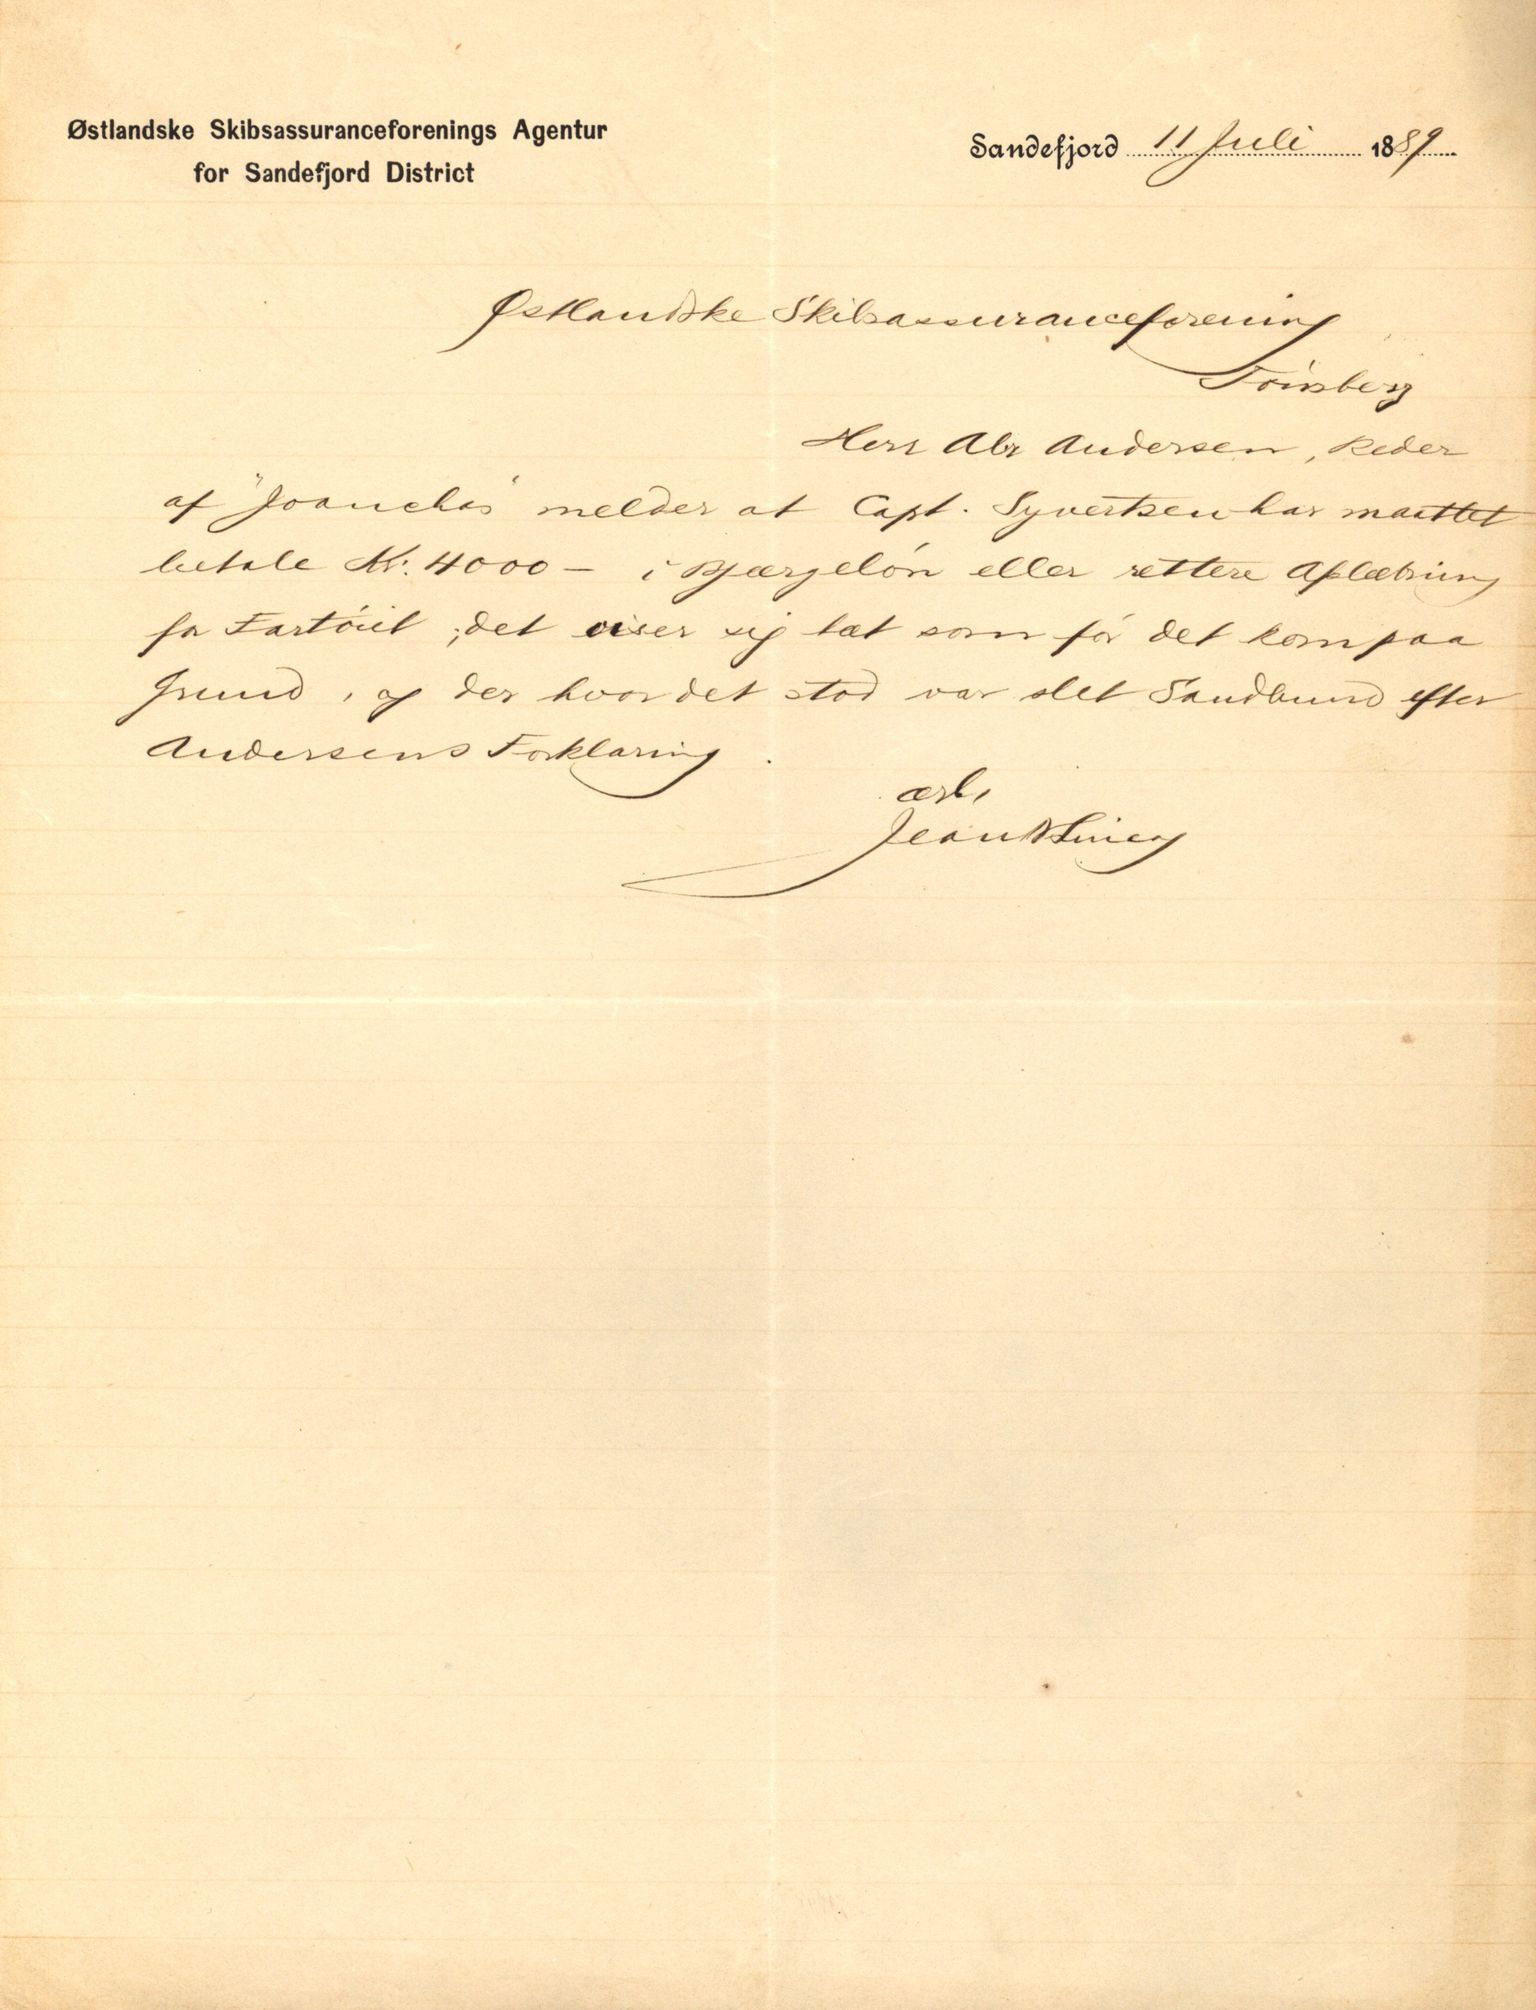 Østlandske Skibsassuranceforenings Agentur
for Sandefjord District
Sandefjord 11 Juli 1889
Østlandske Skibsassuranceforening
Tönsberg
Herr Abr Andersen, Reder
af "Joanchas" melder at Capt. Syvertsen har maattet
betale Kr. 4000 - i Bjærgelön eller rettere Aflætning
for Fartöiet; det viser sig tæt som för det kom paa
Grund, og der hvor det stod var slet Sandbund efter
Andersens Forklaring.
ærb,